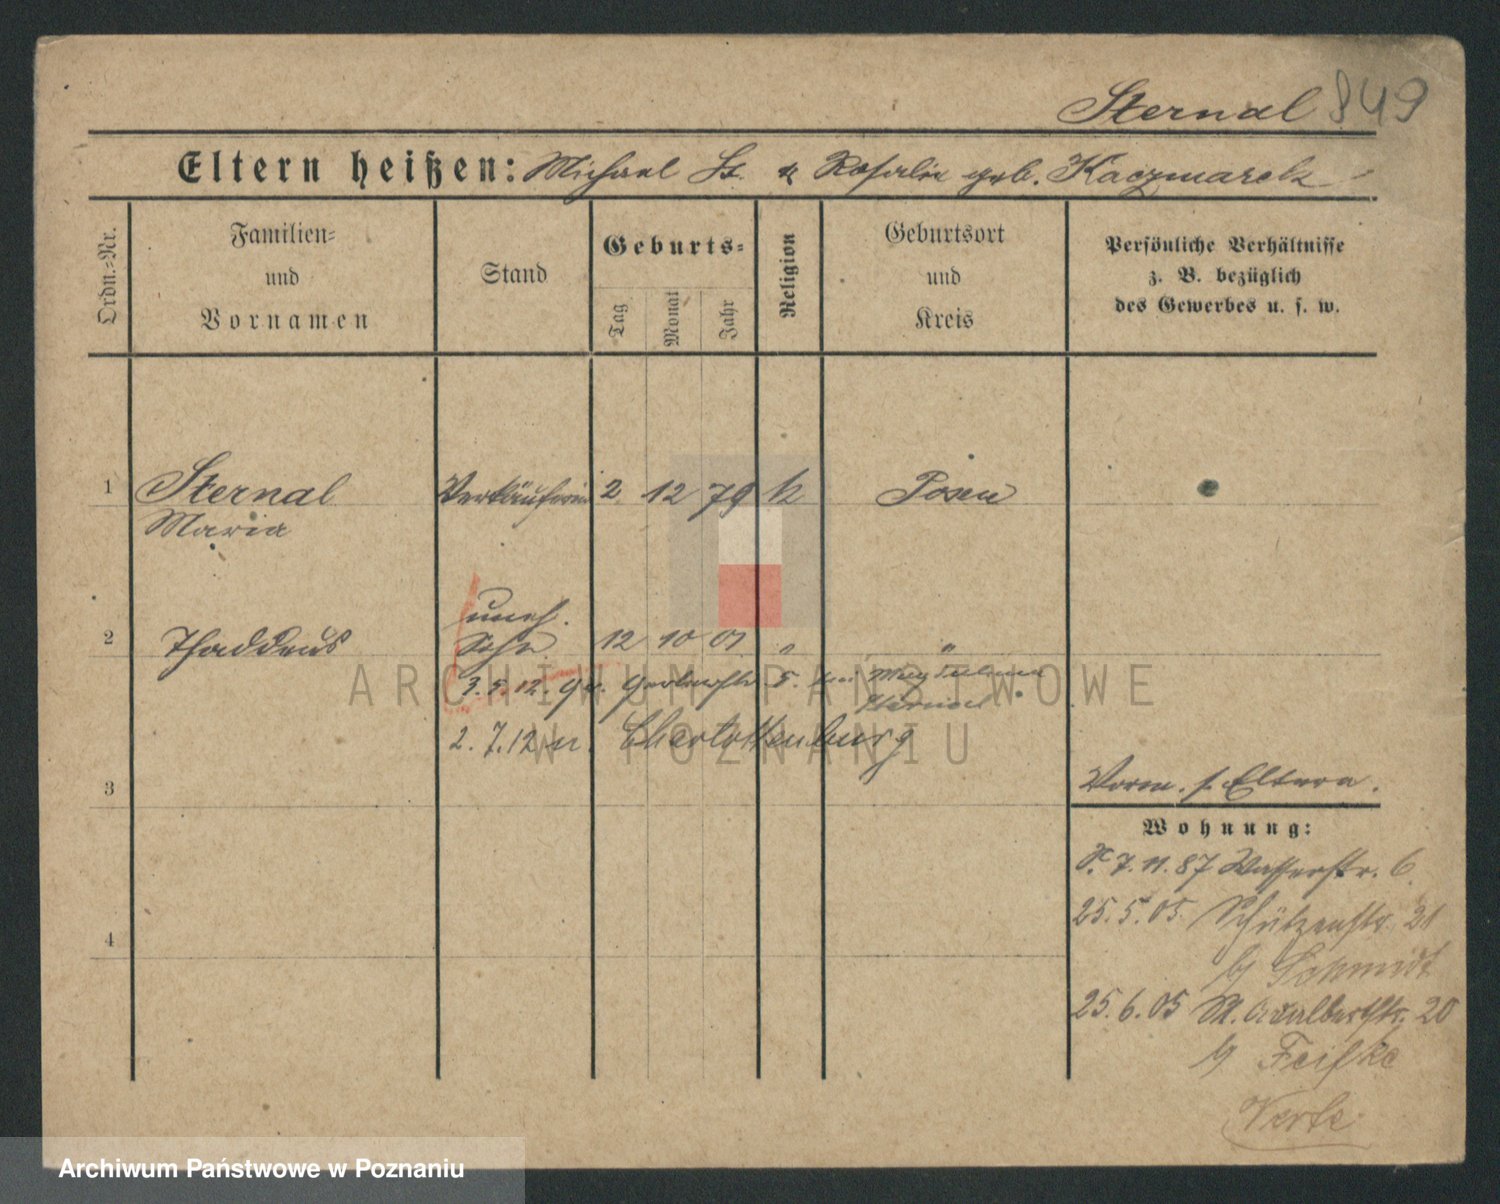 Sternal 849
Eltern heißen: Michael St. & Rosalie geb. Kaczmarek
Ordn.-Nr.
Familien-
und
Vornamen
Stand
Geburts-
Tag
Monat
Jahr
Religion
Geburtsort
und
Kreis
Persönliche Verhältnisse
z. B. bezüglich
des Gewerbes u. s. w.
1 Sternal Verkäuferin 2 12 79 k Posen
Maria
uneh.
2 Thaddeus Sohn 12 10 01 " "
3.5.12. Gerberstr. 5. Magdalena
2.7.12 n. Charlottenburg
3
Vorm. s. Eltern.
Wohnung:
7.11.87 Wasserstr. 6
25.5.05. Schützenstr. 21
4
b/ Schmidt
25.6.05 St. Adalbertstr. 20
b/
ARCHIWUM PAŃSTWOWE
W POZNANIU
Archiwum Państwowe w Poznaniu